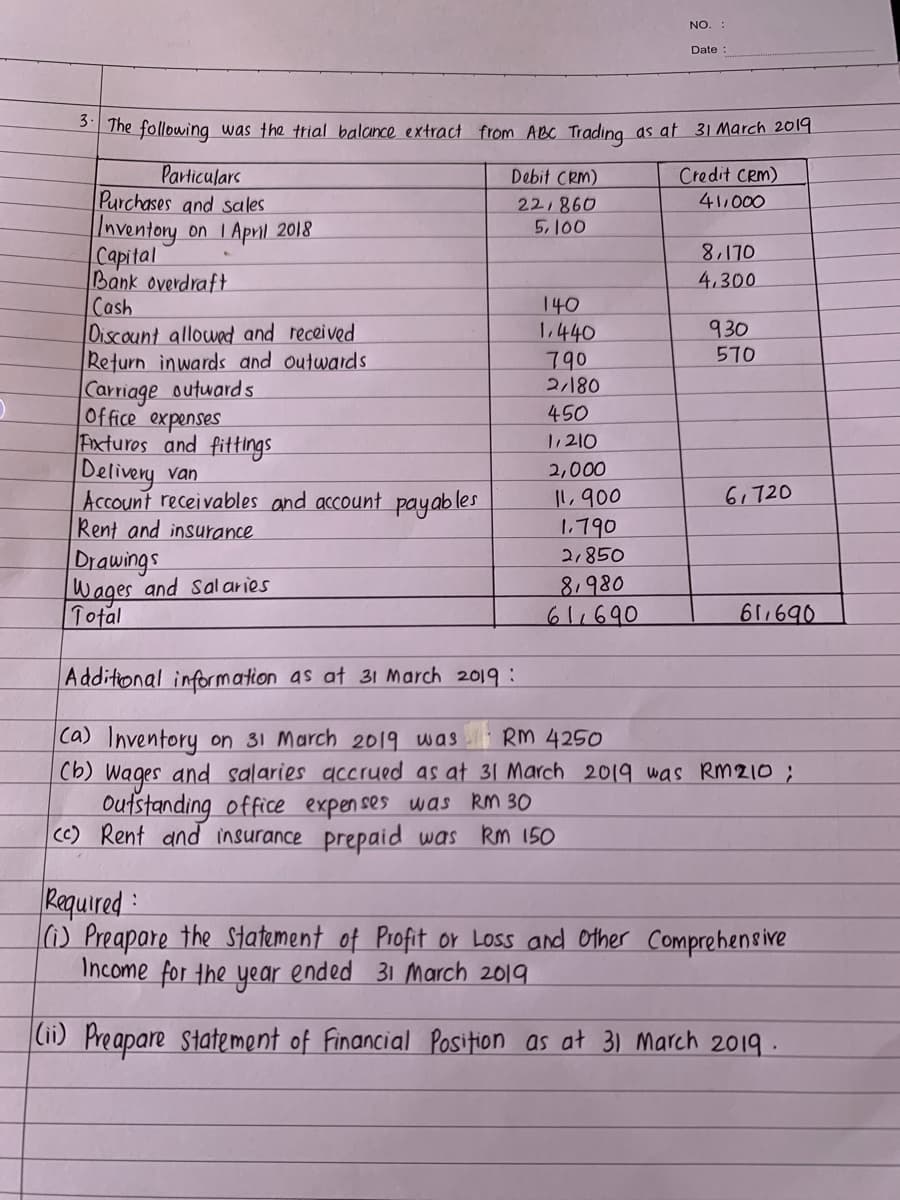 NO. :
Date :
3. The following was the trial balance extract from ABC Trading as at 31 March 2019
Particulars Debit (RM) Credit (RM)
Purchases and sales 22,860 41,000
Inventory on 1 April 2018 5,100
Capital 8,170
Bank overdraft 4,300
Cash 140
Discount allowed and received 1,440 930
Return inwards and outwards 790 570
Carriage outwards 2,180
Office expenses 450
Fixtures and fittings 1,210
Delivery van 2,000
Account receivables and account payables 11,900 6,720
Rent and insurance 1.790
Drawings 2,850
Wages and salaries 8,980
Total 61,690 61,690
Additional information as at 31 March 2019 :
(a) Inventory on 31 March 2019 was RM 4250
(b) Wages and salaries accrued as at 31 March 2019 was RM210 ;
Outstanding office expenses was RM 30
(c) Rent and insurance prepaid was RM 150
Required :
(i) Preapare the Statement of Profit or Loss and Other Comprehensive
Income for the year ended 31 March 2019
(ii) Preapare Statement of Financial Position as at 31 March 2019.